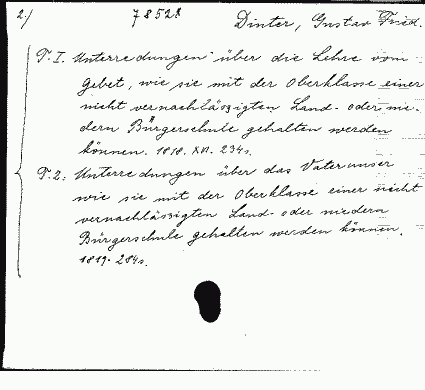 2./ 78528 Dinter, Gustav Fried.
T. I. Unterredungen über die Lehre vom
Gebet, wie sie mit der Oberklasse einer
nicht vernachlässigten Land- oder nie-
dern Bürgerschule gehalten werden
können. 1818. XVI. 234s.
T. 2. Unterredungen über das Vaterunser
wie sie mit der Oberklasse einer nicht
vernachlässigten Land- oder niedern
Bürgerschule gehalten werden können.
1819. 284s.